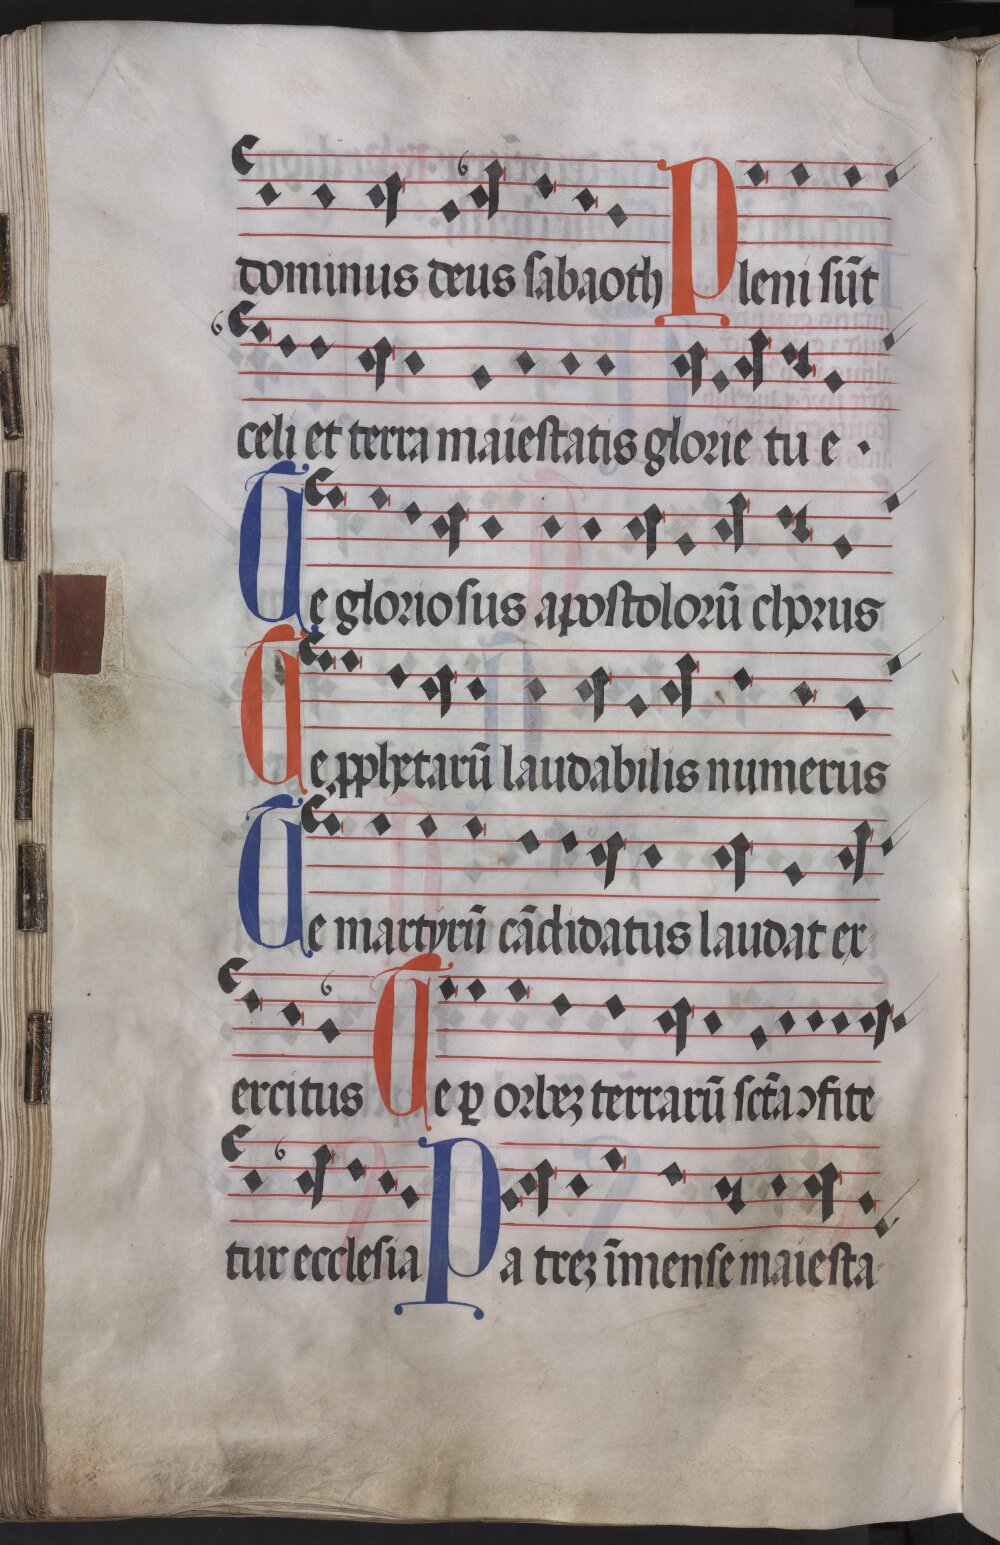 dominus deus sabaoth Pleni sūt
celi et terra maiestatis glorie tue ·
Te gloriosus apostolorū chorus
Te prophetarū laudabilis numerus
Te martyrū cādidatus laudat ex-
ercitus Te ꝑ orbeꝫ terrarū sctā ↄfite
tur ecclesia Patreꝫ īmense maiesta-